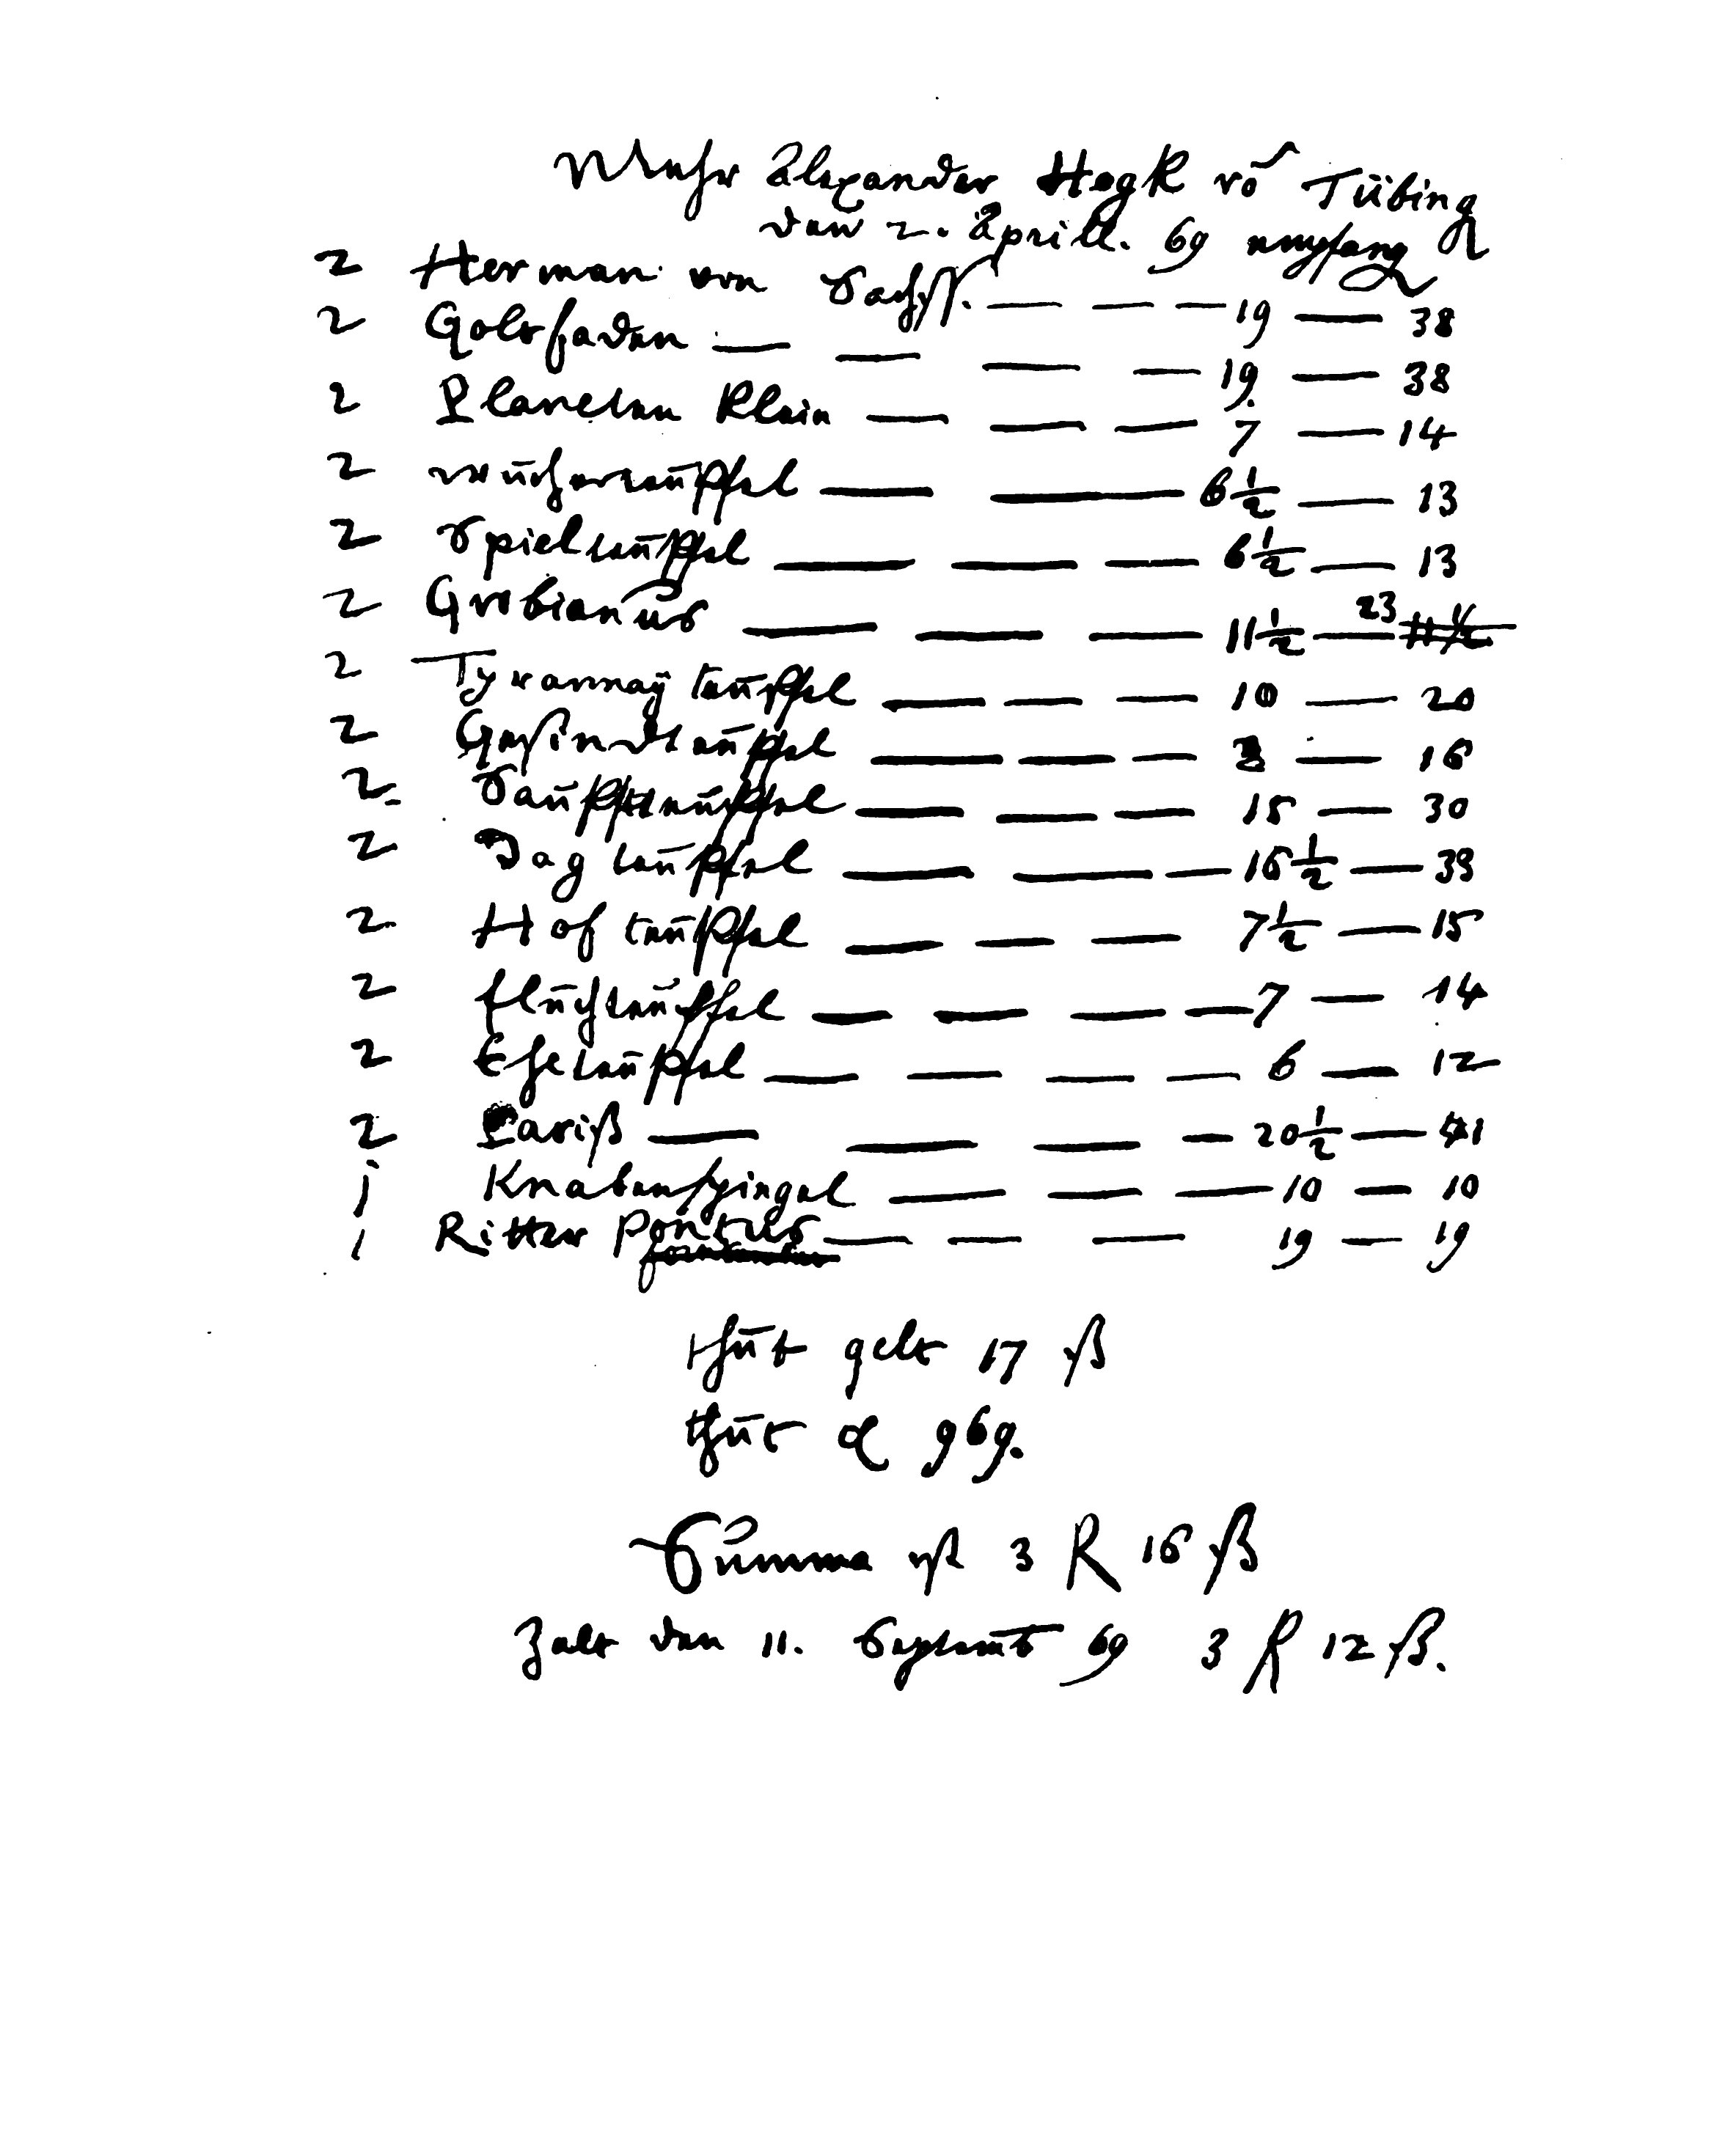 Mehr Alexander Hogk vō Tübing
den 2. Aprill. 69 empfang
2 Herman von Sachß. — — — 19 — 38
2 Goltfaden — — — — 19 — 38
2 Planeten klein — — — 7 — 14
2 wůcherteüffel — — 6 1/2 — 13
2 Spielteüffel — — — 6 1/2 — 13
2 Grobianüs — — — 11 1/2 — 23
2 Tyranney teüffel — — — 10 — 20
2 Gesindtteüffel — — — 8 — 16
2 Sauffteüffel — — — 15 — 30
2 Jag teüffel — — — 16 1/2 — 33
2 Hof teüffel — — — 7 1/2 — 15
2 flůchteüffel — — — — 7 — 14
2 Eheteüffel — — — — 6 — 12
2 Pariß — — — — 20 1/2 — 41
j Knabenspiegel — — — 10 — 10
1 Ritter Pontus — — — 19 — 19
thůt gelt 17 ß
thůt 969.
Summa ist 3 R 16 ß
Zalt den 11. Septemb 69 3 R 12 ß.